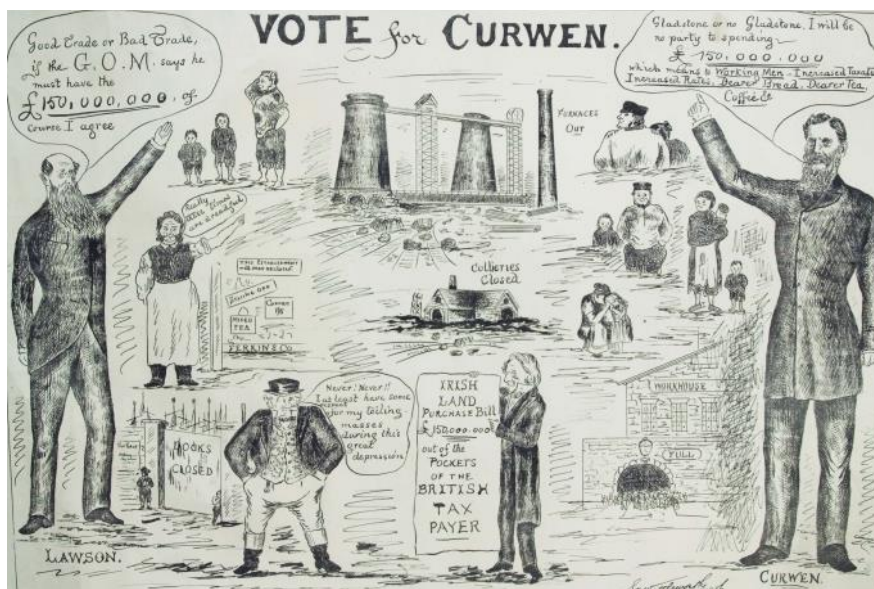 VOTE for CURWEN.
Good Trade or Bad Trade,
if the G.O.M. says he
must have the
£150,000,000, of
course I agree
Gladstone or no Gladstone, I will be
no party to spending
£150,000,000
which means to Working Men - Increased Taxati
Increased Rates, Dearer Bread, Dearer Tea,
Coffee &c
FURNACES
OUT
Really
these times
are dreadful
THIS ESTABLISHMENT
COFFEE
TEA
PERKIN & Co
Collieries
Closed
DOCKS
CLOSED
Never! Never!!
I at least have some
for my toiling
masses
during this
great
depression
IRISH
LAND
PURCHASE Bill
£150,000,000
out of the
POCKETS
OF THE
BRITISH
TAX
PAYER
WORKHOUSE
FULL
LAWSON.
CURWEN.